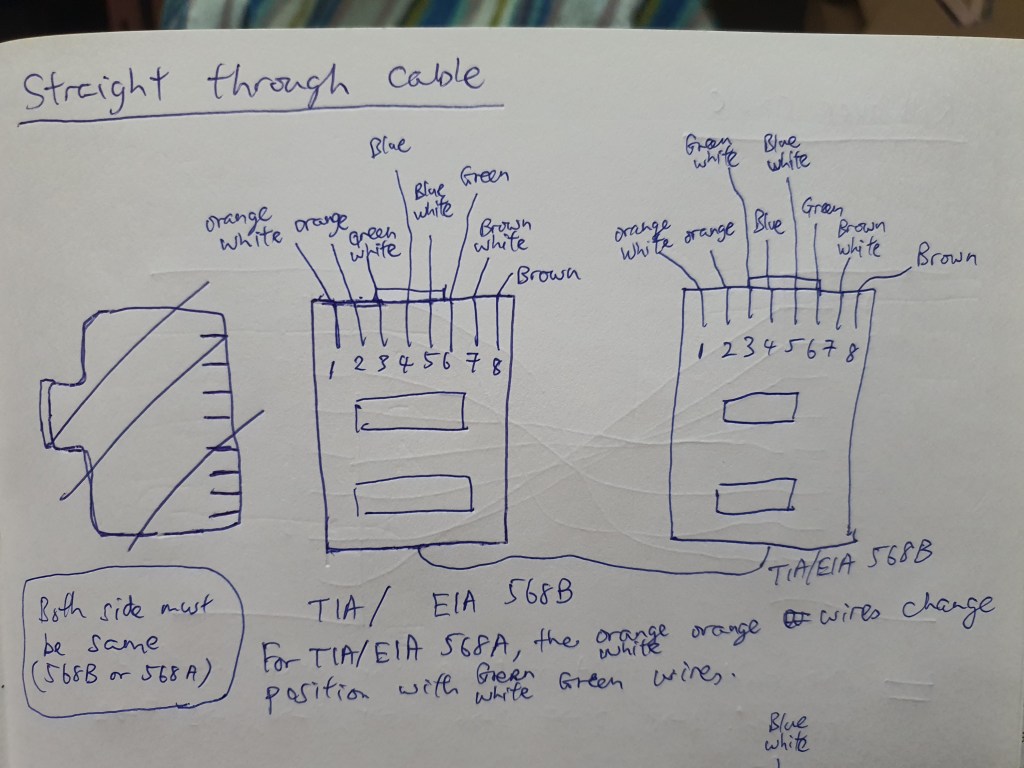 Straight through cable
Blue
orange white
orange
Green white
Blue white
Green
Brown white
Brown
1 2 3 4 5 6 7 8
TIA/ EIA 568B
Green white
Blue white
orange white
orange
Blue
Green
Brown white
Brown
1 2 3 4 5 6 7 8
TIA/EIA 568B
Both side must
be same
(568B or 568A)
For TIA/EIA 568A, the orange white orange wires change
position with Green white Green wires.
Blue
white